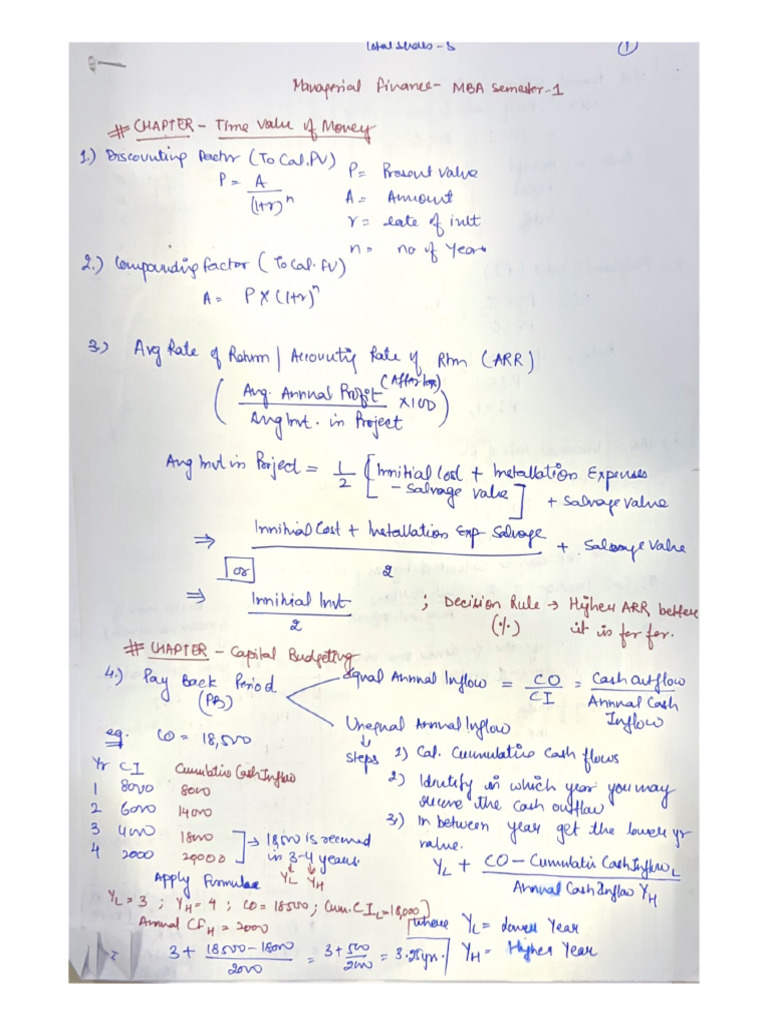 Total Sheets - 5 ①
Managerial Finance - MBA Semester-1
# CHAPTER - Time Value of Money
1.) Discounting Factor (To Cal. PV)
P = A / (1+r)^n
P = Present Value
A = Amount
r = rate of intt
n = no of Years
2.) Compounding factor (To Cal. FV)
A = P × (1+r)^n
3) Avg Rate of Return | Accounting Rate of Rtrn (ARR)
( Avg. Annual Profit (After tax) / Avg Invt. in Project × 100 )
Avg Invt in Project = 1/2 [ Innitial Cost + Installation Expenses - Salvage Value ] + Salvage Value
⇒ Innitial Cost + Installation Exp - Salvage / 2 + Salvage Value
or
⇒ Innitial Invt / 2 ; Decision Rule → Higher ARR, better
(%) it is for
# CHAPTER - Capital Budgetting
4.) Pay Back Period
(PB)
Equal Annual Inflow = CO / CI = Cash Outflow / Annual Cash Inflow
Unequal Annual Inflow
↓
eg. CO = 18,500
Yr CI Cumulative Cash Inflow
1 8000 8000
2 6000 14000
3 4000 18000
4 2000 20000
] → 18,500 is received
in 3-4 years.
↓ ↓
Y_L Y_H
Steps 1) Cal. Cummulative Cash flows
2) Identify in which year you may
receive the cash outflow
3) In between year get the lower yr
value.
Y_L + CO - Cumulative Cash Inflow_L / Annual Cash Inflow Y_H
Apply Formulae
Y_L = 3 ; Y_H = 4 ; CO = 18500 ; Cum. CI_L = 18,000
Annual CF_H = 2000
3 + 18500 - 18000 / 2000 = 3 + 500 / 2000 = 3.25 yr.
Where Y_L = Lower Year
Y_H = Higher Year